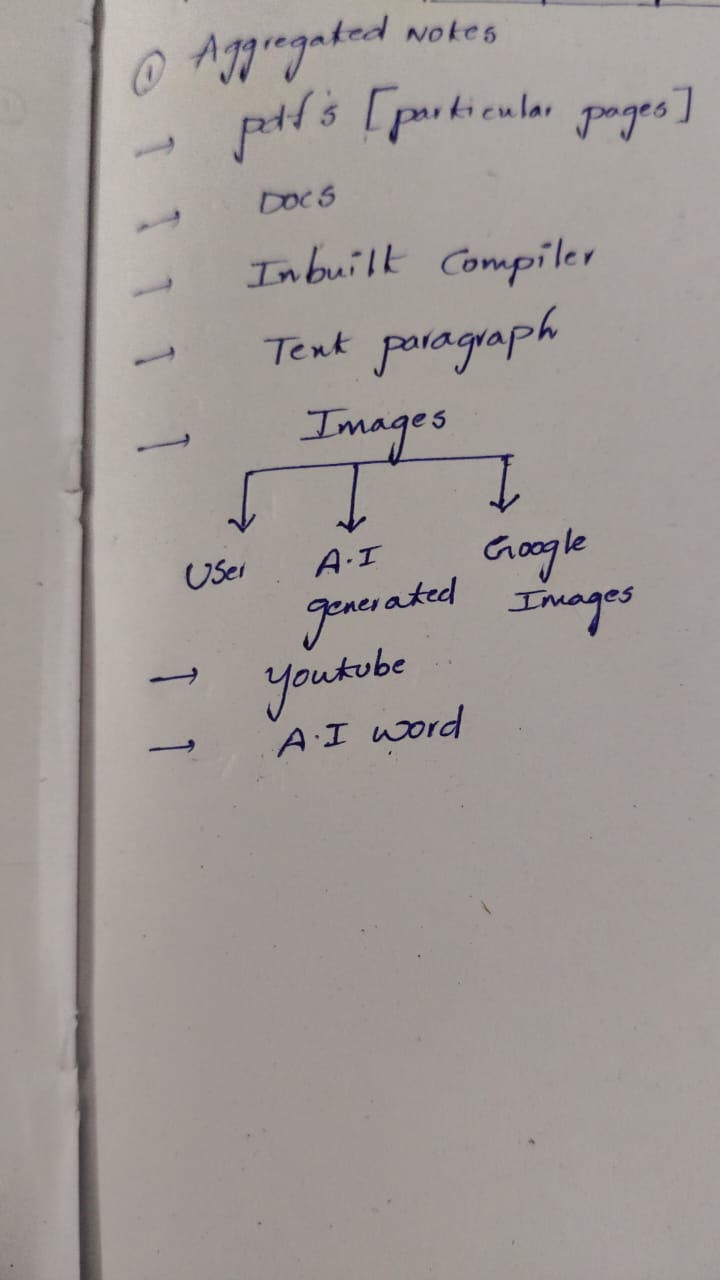 ① Aggregated Notes
→ pdf's [particular pages]
→ Docs
→ Inbuilt Compiler
→ Text paragraph
→ Images
User A.I generated Google Images
→ Youtube
→ A.I word